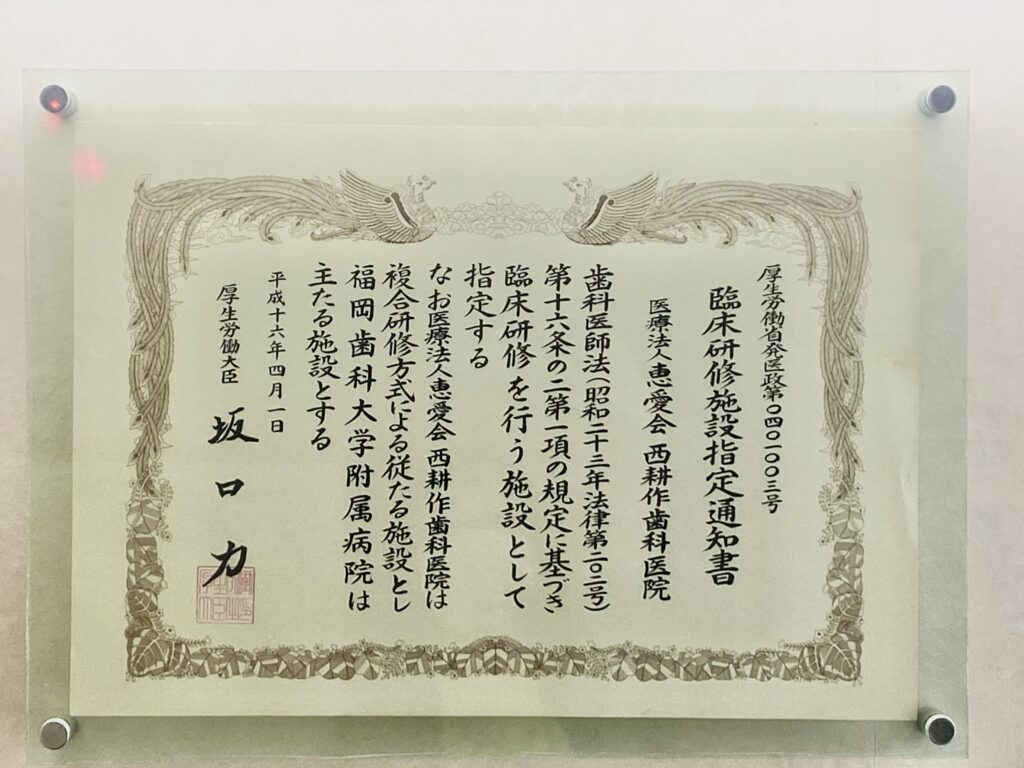 厚生労働省発医政第〇四〇一〇〇三号
臨床研修施設指定通知書
医療法人恵愛会 西耕作歯科医院
歯科医師法(昭和二十三年法律第二〇二号)
第十六条の二第一項の規定に基づき
臨床研修を行う施設として
指定する
なお医療法人恵愛会 西耕作歯科医院は
複合研修方式による従たる施設とし
福岡歯科大学附属病院は
主たる施設とする
平成十六年四月一日
厚生労働大臣 坂口力